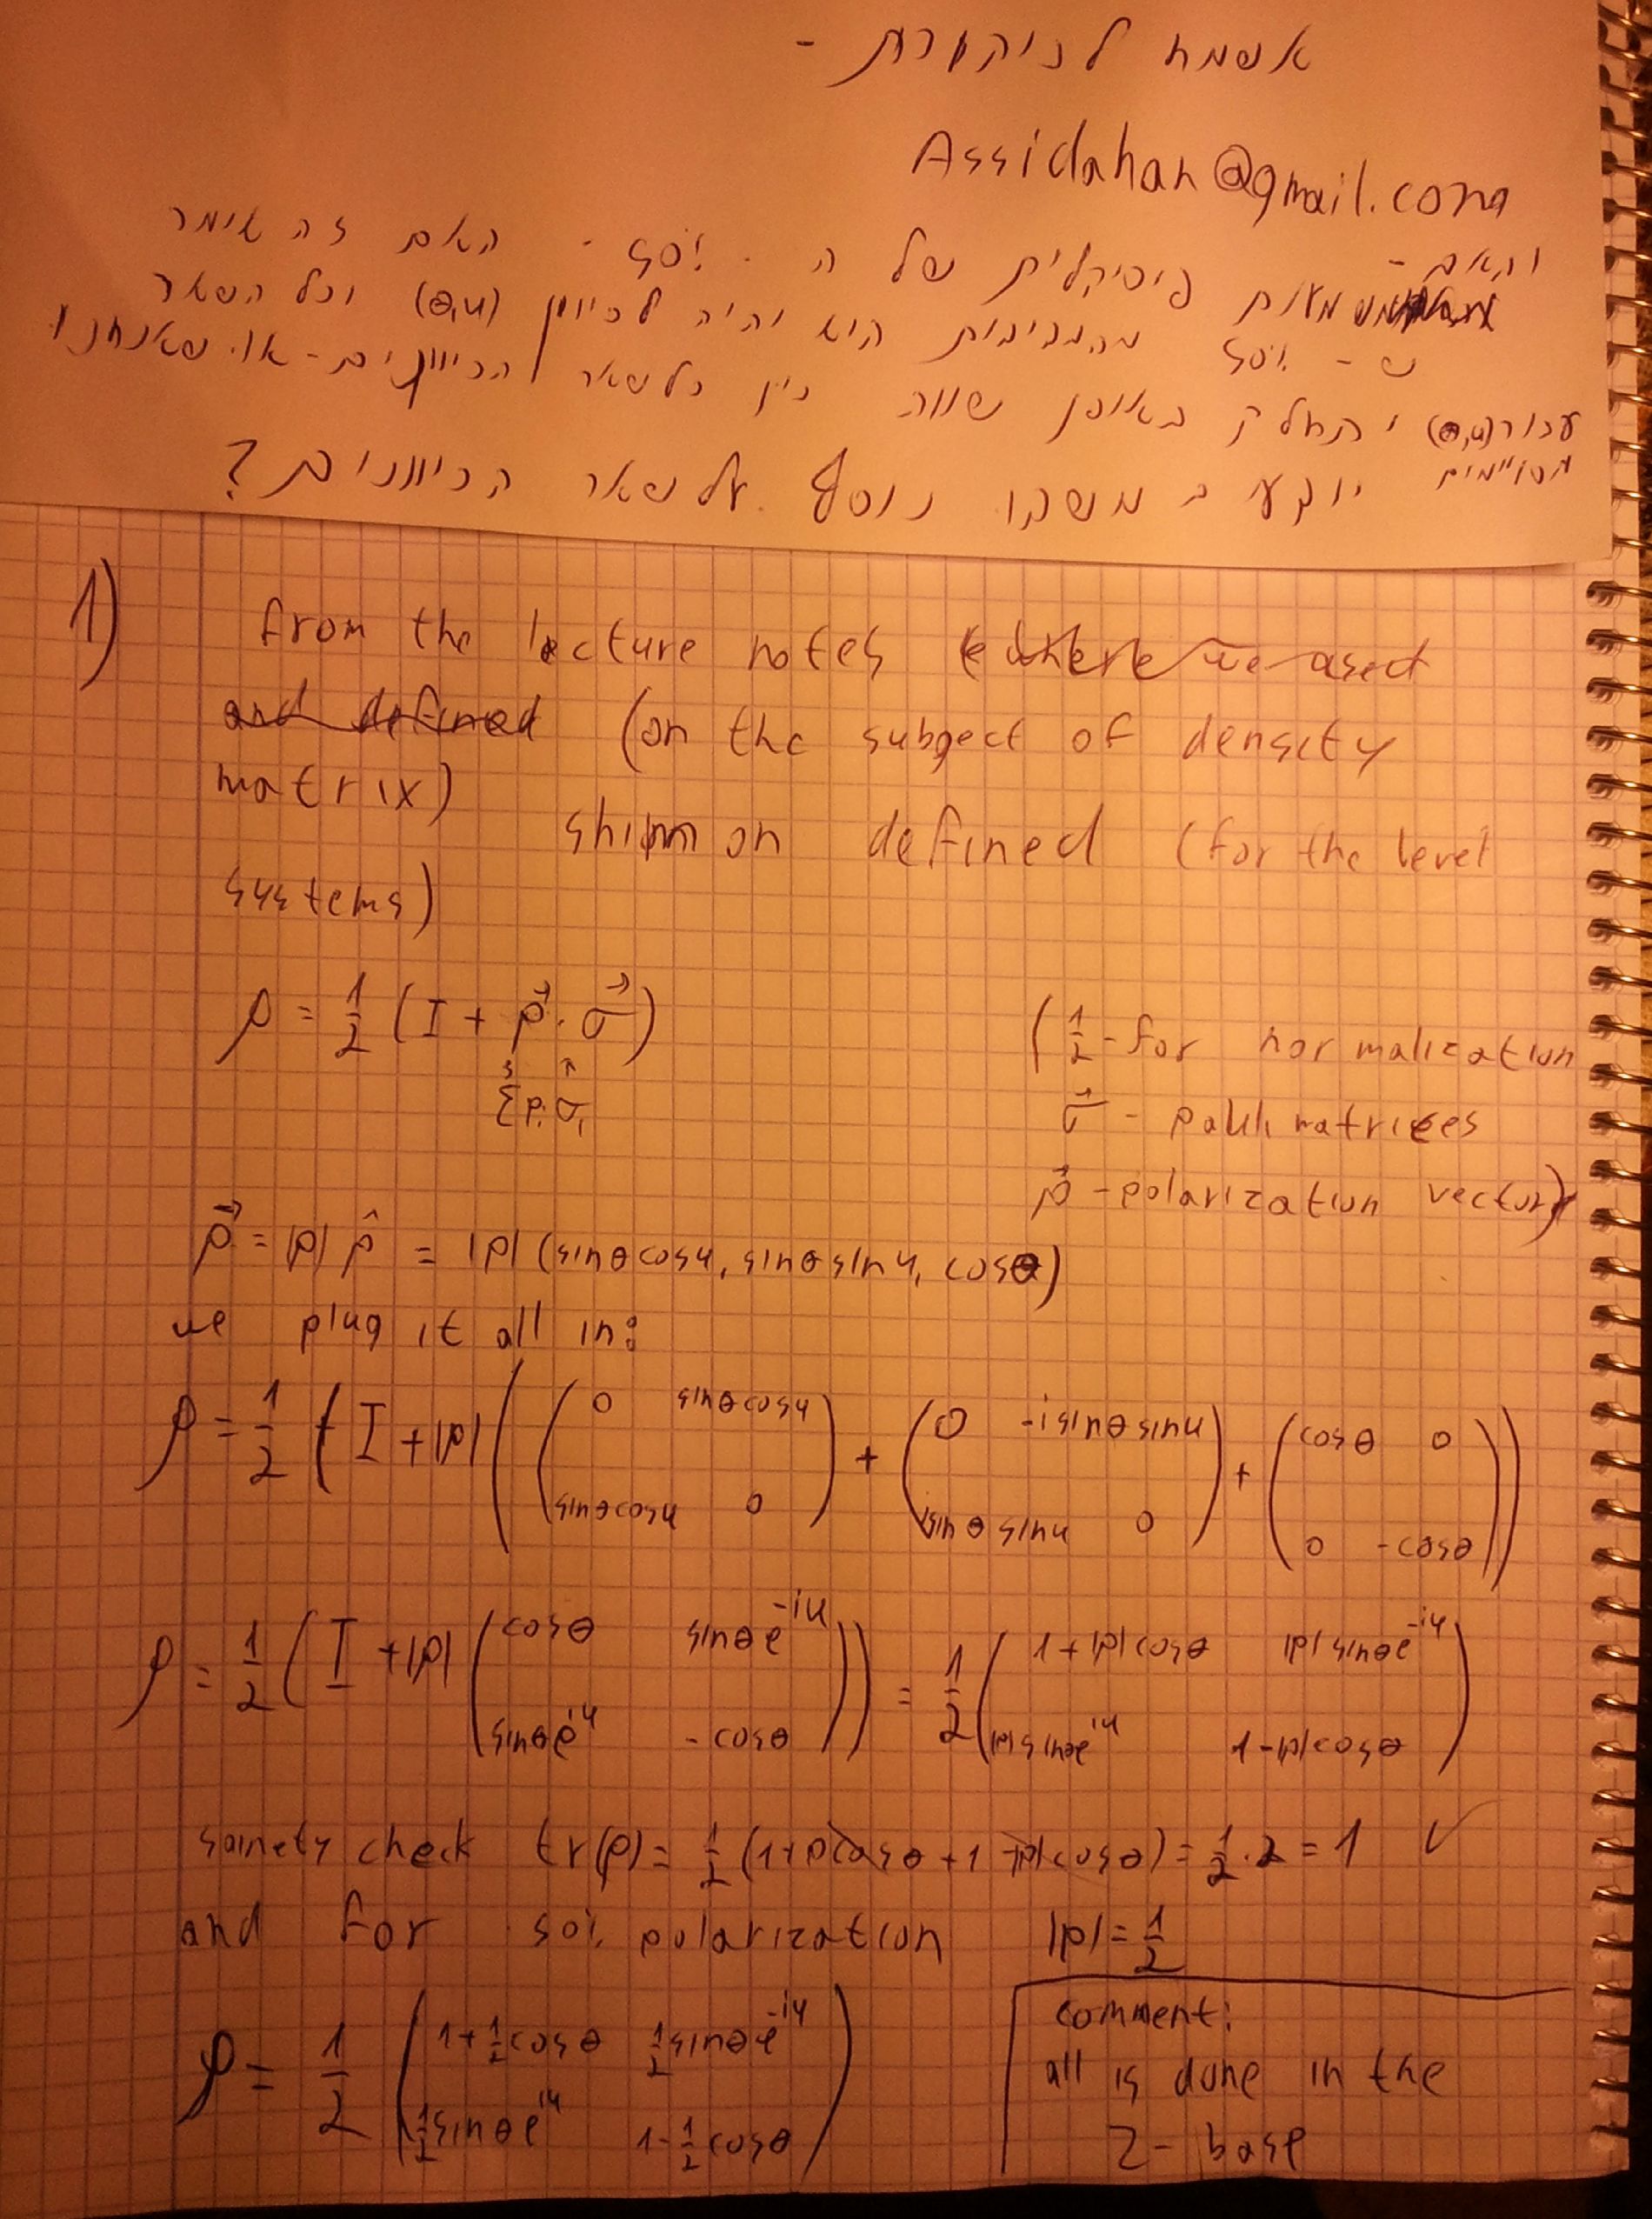 אשמח לביקורת -
Assidahan@gmail.com
והאם -
משמעות פיסיקלית של ה - 50% - האם זה אומר
ש - 50% מהמדידות הוא יהיה לכיוון (θ,φ) וכל השאר
יתחלק באופן שווה בין כל שאר הכיוונים - או שאנחנו
עבור (θ,φ) מסויימים יוקע ב משקל נוסף על שאר הכיוונים?
1)
from the lecture notes (where we
and defined (on the subject of density
matrix)
shimon defined (for the level
systems)
ρ = 1/2 (I + p⃗·σ⃗) (1/2 - for normalization
Σ³ pᵢ σ̂ᵢ σ⃗ - pauli matrices
p⃗ - polarization vector)
p⃗ = |p| p̂ = |p| (sinθcosφ, sinθsinφ, cosθ)
we plug it all in:
ρ = 1/2 (I + |p| ((0 sinθcosφ; sinθcosφ 0) + (0 -isinθsinφ; isinθsinφ 0) + (cosθ 0; 0 -cosθ)))
ρ = 1/2 (I + |p| (cosθ sinθe^-iφ; sinθe^iφ -cosθ)) = 1/2 (1+|p|cosθ |p|sinθe^-iφ; |p|sinθe^iφ 1-|p|cosθ)
sainety check tr(ρ) = 1/2 (1+pcosθ+1-|p|cosθ) = 1/2·2 = 1 ✓
and for 50% polarization |p| = 1/2
ρ = 1/2 (1+1/2cosθ 1/2sinθe^-iφ; 1/2sinθe^iφ 1-1/2cosθ)
comment:
all is done in the
Z - base